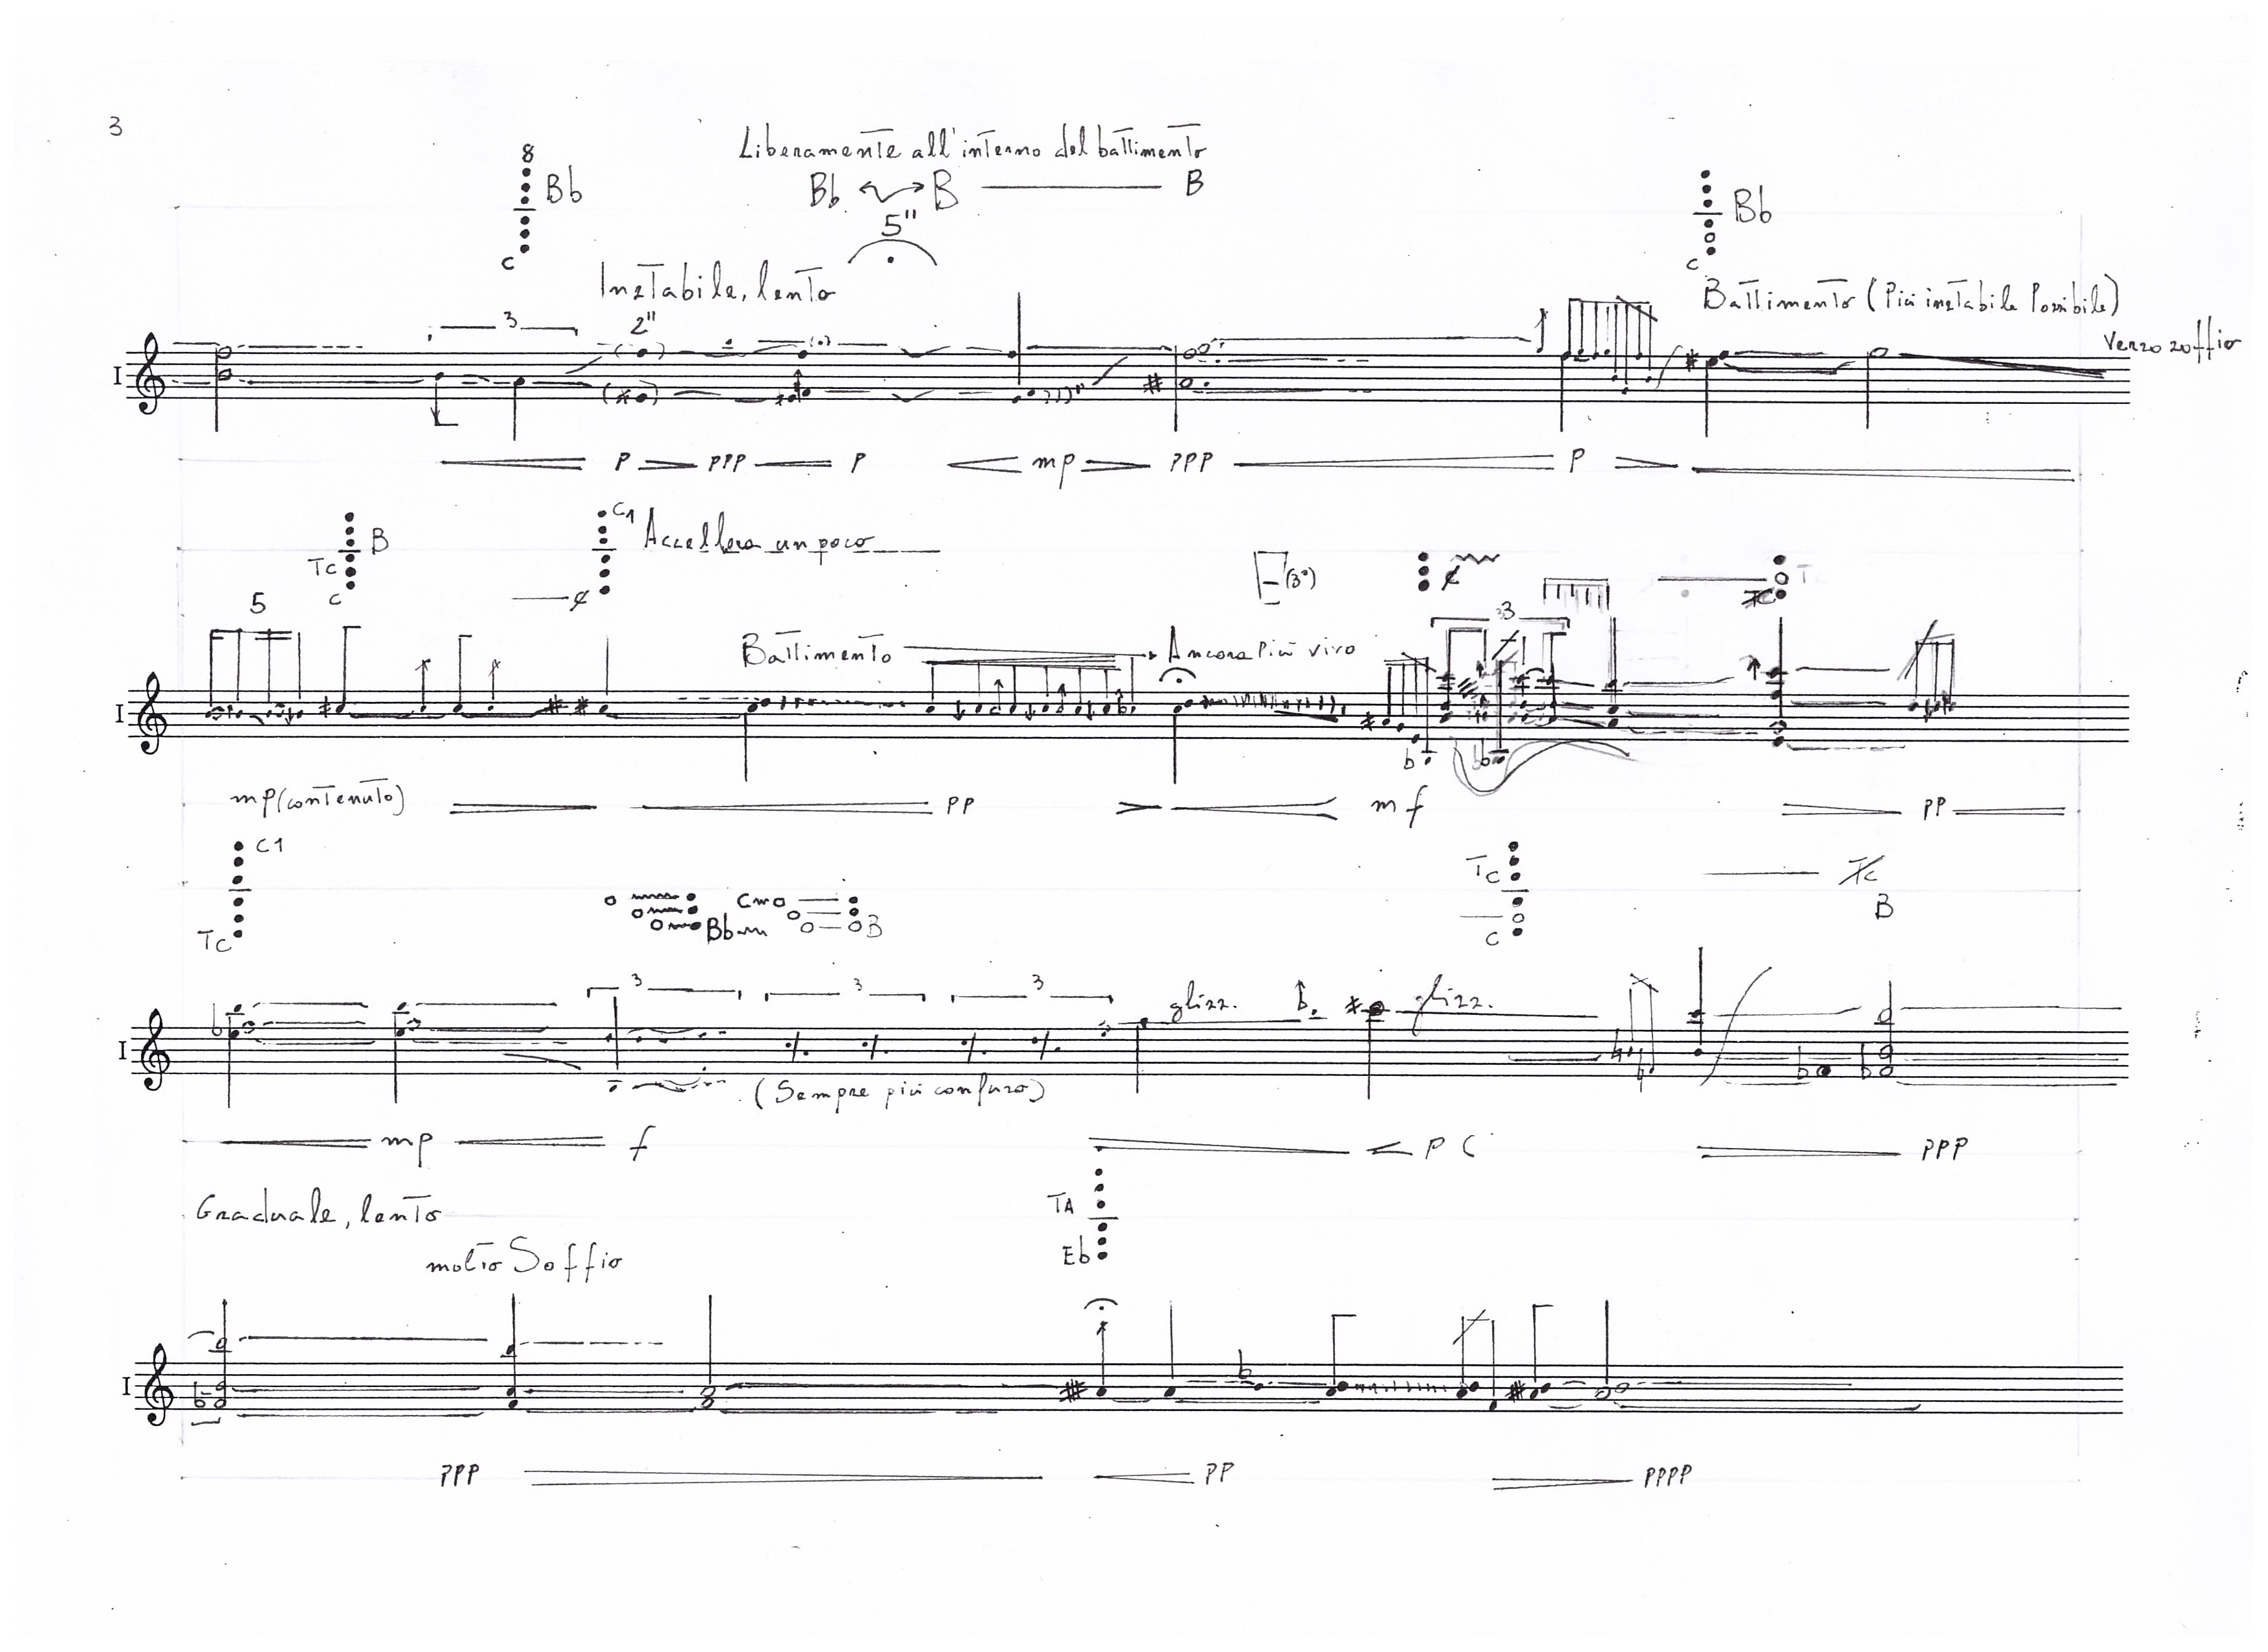 3
8
Bb
Liberamente all'interno del battimento
Bb B B
5"
Bb
C
C
Instabile, lento
Battimento (Più instabile Possibile)
3
2"
verso soffio
I
P PPP P mp PPP P
B
C1
Accellera un poco
Tc
C
5
(3ª)
3
Battimento
Ancora Più vivo
I
mp (contenuto) PP mf PP
C1
Tc
Tc
Tc
Bb
B
C
B
3 3 3
gliss.
gliss.
I
(Sempre più confuso)
mp f P PPP
Graduale, lento
TA
Eb
molto Soffio
I
PPP PP PPPP